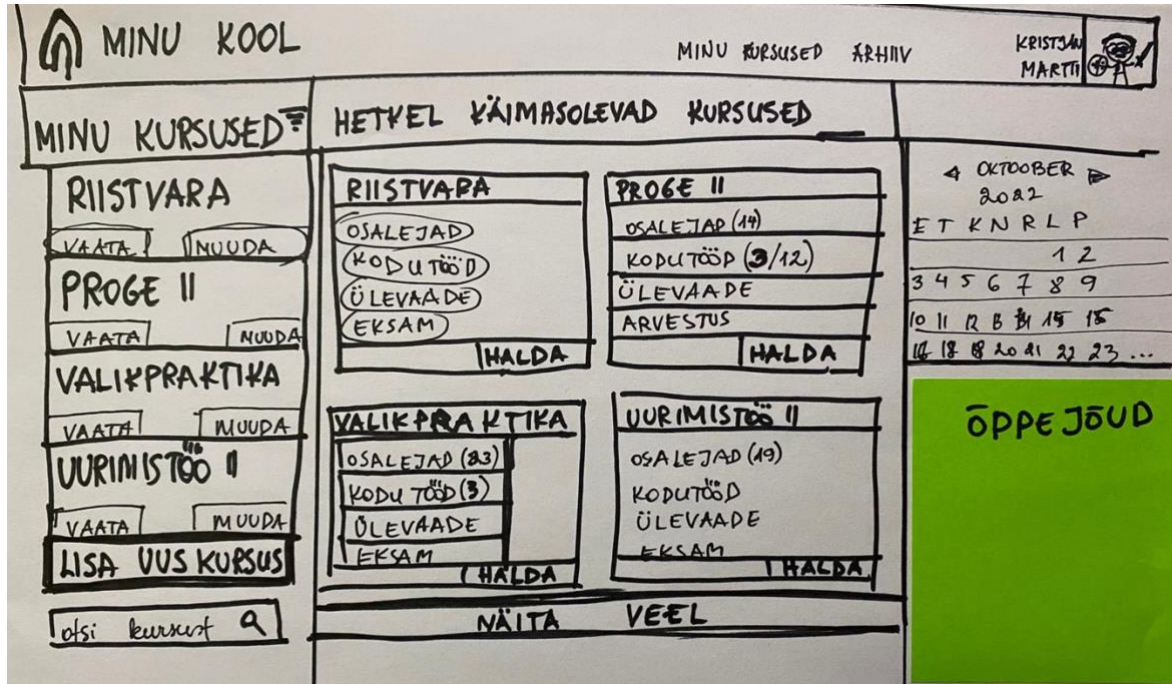 MINU KOOL
MINU KURSUSED ARHIIV
KRISTJAN
MARTTI
MINU KURSUSED
RIISTVARA
VAATA MUUDA
PROGE II
VAATA MUUDA
VALIKPRAKTIKA
VAATA MUUDA
UURIMISTÖÖ II
VAATA MUUDA
LISA UUS KURSUS
otsi kursust
HETKEL KÄIMASOLEVAD KURSUSED
RIISTVARA
OSALEJAD
KODUTÖÖD
ÜLEVAADE
EKSAM
HALDA
PROGE II
OSALEJAD (14)
KODUTÖÖD (3/12)
ÜLEVAADE
ARVESTUS
HALDA
VALIKPRAKTIKA
OSALEJAD (23)
KODUTÖÖD (3)
ÜLEVAADE
EKSAM
HALDA
UURIMISTÖÖ II
OSALEJAD (19)
KODUTÖÖD
ÜLEVAADE
EKSAM
HALDA
NÄITA VEEL
OKTOOBER
2022
E T K N R L P
1 2
3 4 5 6 7 8 9
10 11 12 13 14 15 16
18 20 21 22 23 ...
ÕPPEJÕUD